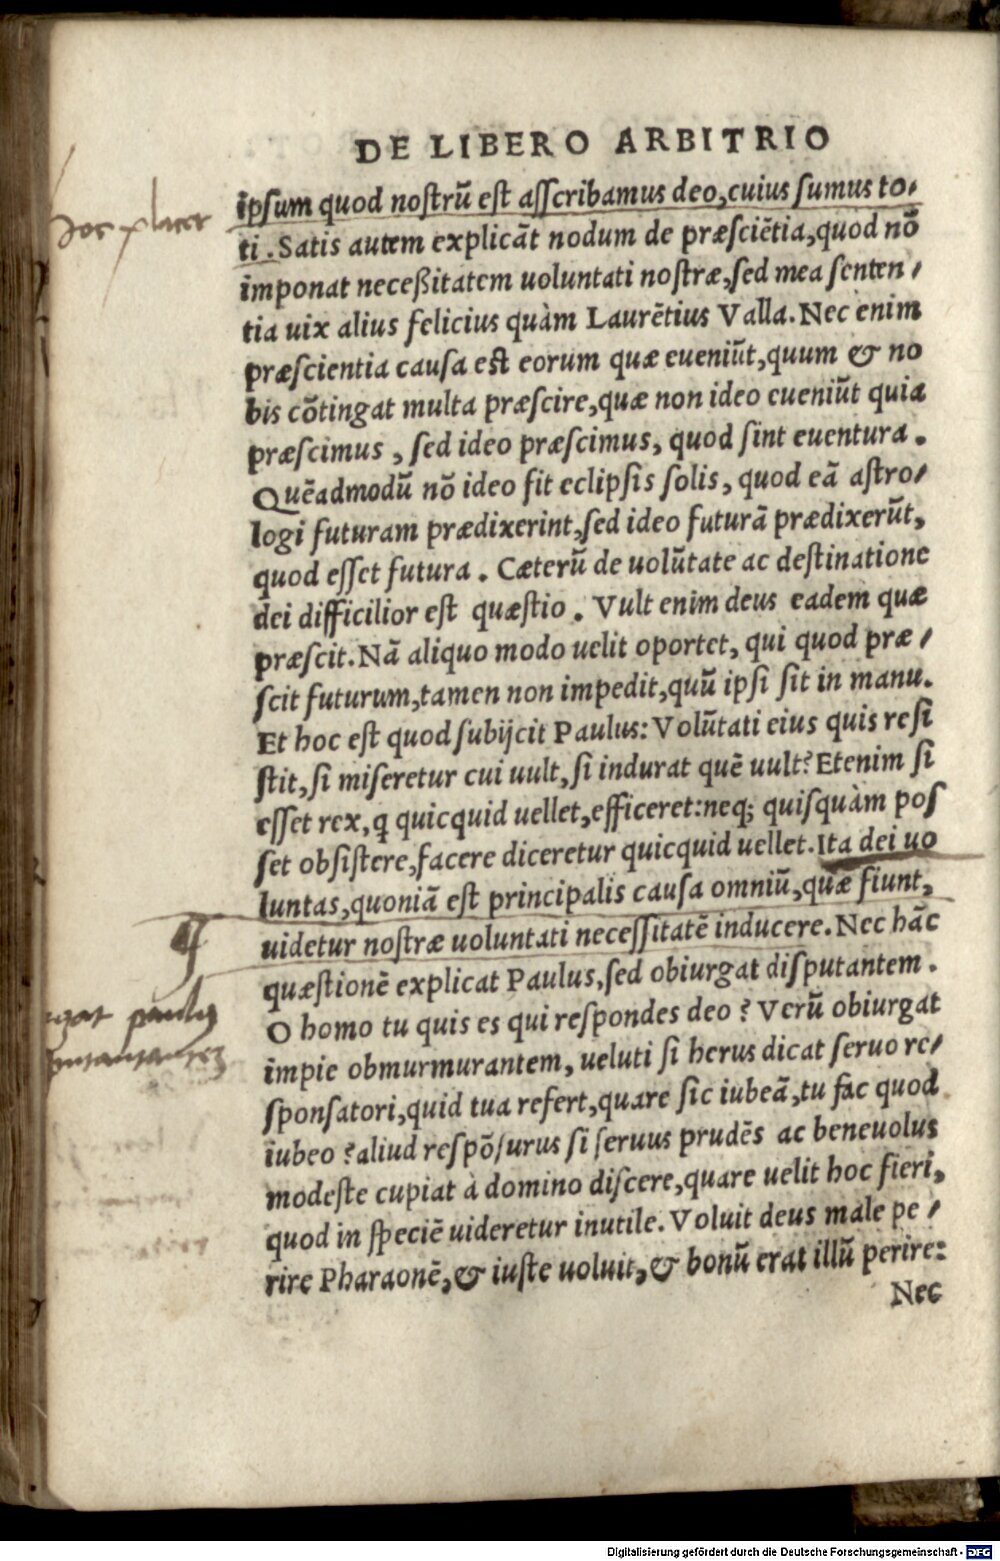 DE LIBERO ARBITRIO
ipsum quod nostrū est asscribamus deo, cuius sumus to⸗
ti. Satis autem explicāt nodum de præsciētia, quod nō
imponat neceßitatem uoluntati nostræ, sed mea senten⸗
tia uix alius felicius quàm Laurētius Valla. Nec enim
præscientia causa est eorum quæ eueniūt, quum & no
bis cōtingat multa præscire, quæ non ideo eueniūt quia
præscimus, sed ideo præscimus, quod sint euentura.
Quēadmodū nō ideo fit eclipsis solis, quod eā astro⸗
logi futuram prædixerint, sed ideo futurā prædixerūt,
quod esset futura. Cæterū de uolūtate ac destinatione
dei difficilior est quæstio. Vult enim deus eadem quæ
præscit. Nā aliquo modo uelit oportet, qui quod præ⸗
scit futurum, tamen non impedit, quū ipsi sit in manu.
Et hoc est quod subijcit Paulus: Volūtati eius quis resi
stit, si miseretur cui uult, si indurat quē uult? Etenim si
esset rex, q̨ quicquid uellet, efficeret: neq; quisquàm pos
set obsistere, facere diceretur quicquid uellet. Ita dei uo
luntas, quoniā est principalis causa omniū, quæ fiunt,
uidetur nostræ uoluntati necessitatē inducere. Nec hāc
quæstionē explicat Paulus, sed obiurgat disputantem.
O homo tu quis es qui respondes deo? Verū obiurgat
impie obmurmurantem, ueluti si herus dicat seruo re⸗
sponsatori, quid tua refert, quare sic iubeā, tu fac quod
iubeo? aliud respōsurus si seruus prudēs ac beneuolus
modeste cupiat à domino discere, quare uelit hoc fieri,
quod in speciē uideretur inutile. Voluit deus male pe⸗
rire Pharaonē, & iuste uoluit, & bonū erat illū perire:
Nec
paulus
Digitalisierung gefördert durch die Deutsche Forschungsgemeinschaft - DFG